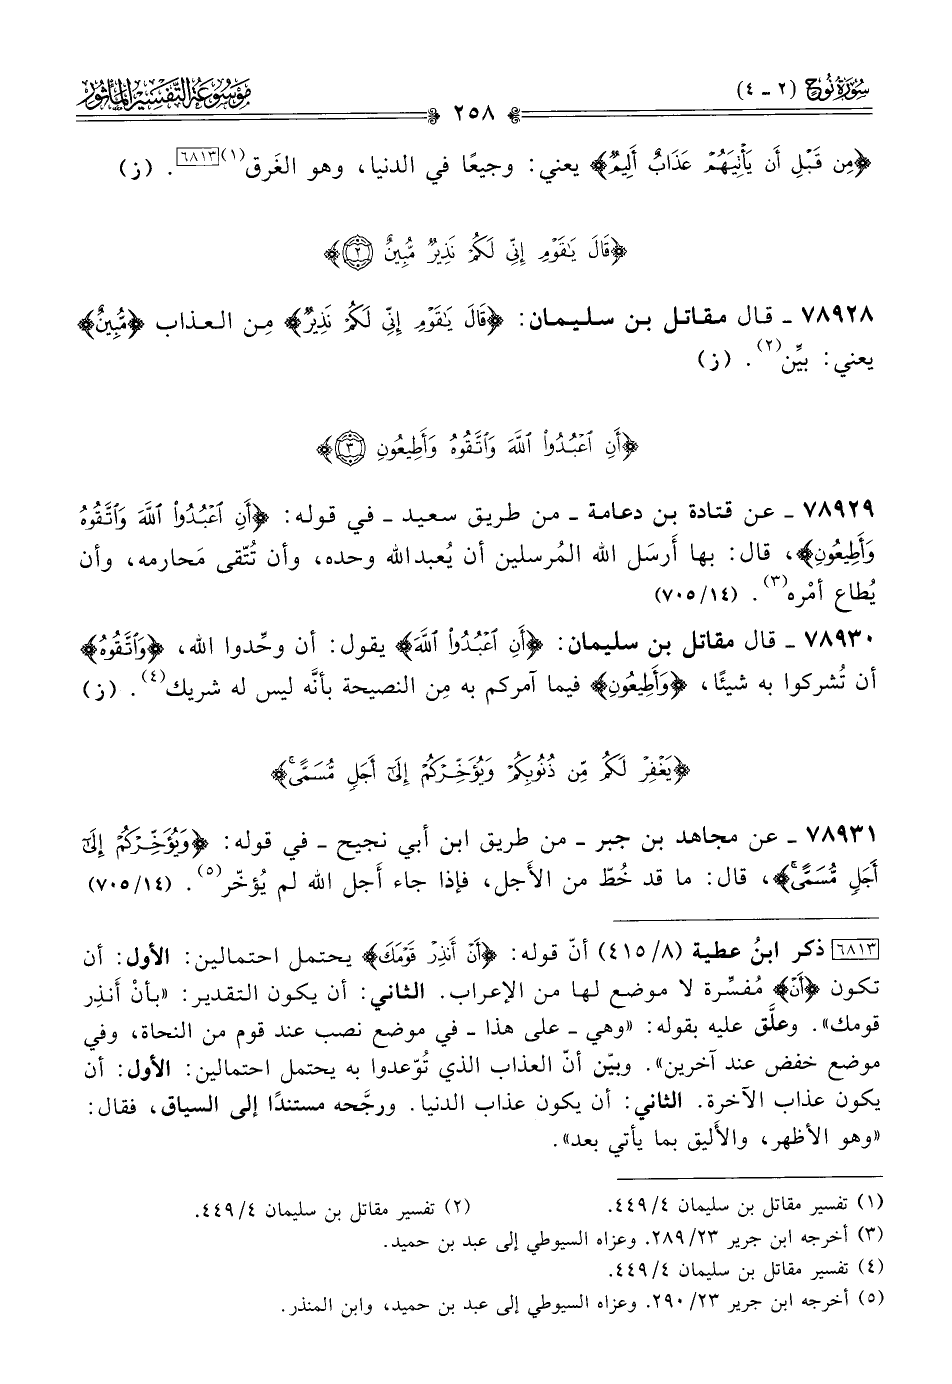 سُورَةُ نُوحٍ (٢ - ٤)
٢٥٨
مَوْسُوعَةُ التَّفْسِيرِ المَأْثُور
﴿مِن قَبْلِ أَن يَأْتِيَهُمْ عَذَابٌ أَلِيمٌ﴾ يعني: وجيعًا في الدنيا، وهو الغَرق(١)[٦٨١٣]. (ز)
﴿قَالَ يَٰقَوْمِ إِنِّي لَكُمْ نَذِيرٌ مُّبِينٌ ٢﴾
٧٨٩٢٨ - قال مقاتل بن سليمان: ﴿قَالَ يَٰقَوْمِ إِنِّي لَكُمْ نَذِيرٌ﴾ مِن العذاب ﴿مُّبِينٌ﴾
يعني: بيِّن(٢). (ز)
﴿أَنِ ٱعْبُدُوا۟ ٱللَّهَ وَٱتَّقُوهُ وَأَطِيعُونِ ٣﴾
٧٨٩٢٩ - عن قتادة بن دعامة - من طريق سعيد - في قوله: ﴿أَنِ ٱعْبُدُوا۟ ٱللَّهَ وَٱتَّقُوهُ
وَأَطِيعُونِ﴾، قال: بها أَرسَل الله المُرسلين أن يُعبد الله وحده، وأن تُتّقى مَحارمه، وأن
يُطاع أمْره(٣). (٧٠٥/١٤)
٧٨٩٣٠ - قال مقاتل بن سليمان: ﴿أَنِ ٱعْبُدُوا۟ ٱللَّهَ﴾ يقول: أن وحِّدوا الله، ﴿وَٱتَّقُوهُ﴾
أن تُشركوا به شيئًا، ﴿وَأَطِيعُونِ﴾ فيما آمركم به مِن النصيحة بأنَّه ليس له شريك(٤). (ز)
﴿يَغْفِرْ لَكُم مِّن ذُنُوبِكُمْ وَيُؤَخِّرْكُمْ إِلَىٰٓ أَجَلٍ مُّسَمًّىۚ﴾
٧٨٩٣١ - عن مجاهد بن جبر - من طريق ابن أبي نجيح - في قوله: ﴿وَيُؤَخِّرْكُمْ إِلَىٰٓ
أَجَلٍ مُّسَمًّىۚ﴾، قال: ما قد خُطّ من الأجل، فإذا جاء أجل الله لم يُؤخّر(٥). (٧٠٥/١٤)
[٦٨١٣] ذكر ابنُ عطية (٤١٥/٨) أنّ قوله: ﴿أَنْ أَنذِرْ قَوْمَكَ﴾ يحتمل احتمالين: الأول: أن
تكون ﴿أَنْ﴾ مُفسِّرة لا موضع لها من الإعراب. الثاني: أن يكون التقدير: «بأنْ أَنذِر
قومك». وعلَّق عليه بقوله: «وهي - على هذا - في موضع نصب عند قوم من النحاة، وفي
موضع خفض عند آخرين». وبيّن أنّ العذاب الذي تُوّعدوا به يحتمل احتمالين: الأول: أن
يكون عذاب الآخرة. الثاني: أن يكون عذاب الدنيا. ورجَّحه مستندًا إلى السياق، فقال:
«وهو الأظهر، والأليق بما يأتي بعد».
(١) تفسير مقاتل بن سليمان ٤٤٩/٤. (٢) تفسير مقاتل بن سليمان ٤٤٩/٤.
(٣) أخرجه ابن جرير ٢٨٩/٢٣. وعزاه السيوطي إلى عبد بن حميد.
(٤) تفسير مقاتل بن سليمان ٤٤٩/٤.
(٥) أخرجه ابن جرير ٢٩٠/٢٣. وعزاه السيوطي إلى عبد بن حميد، وابن المنذر.